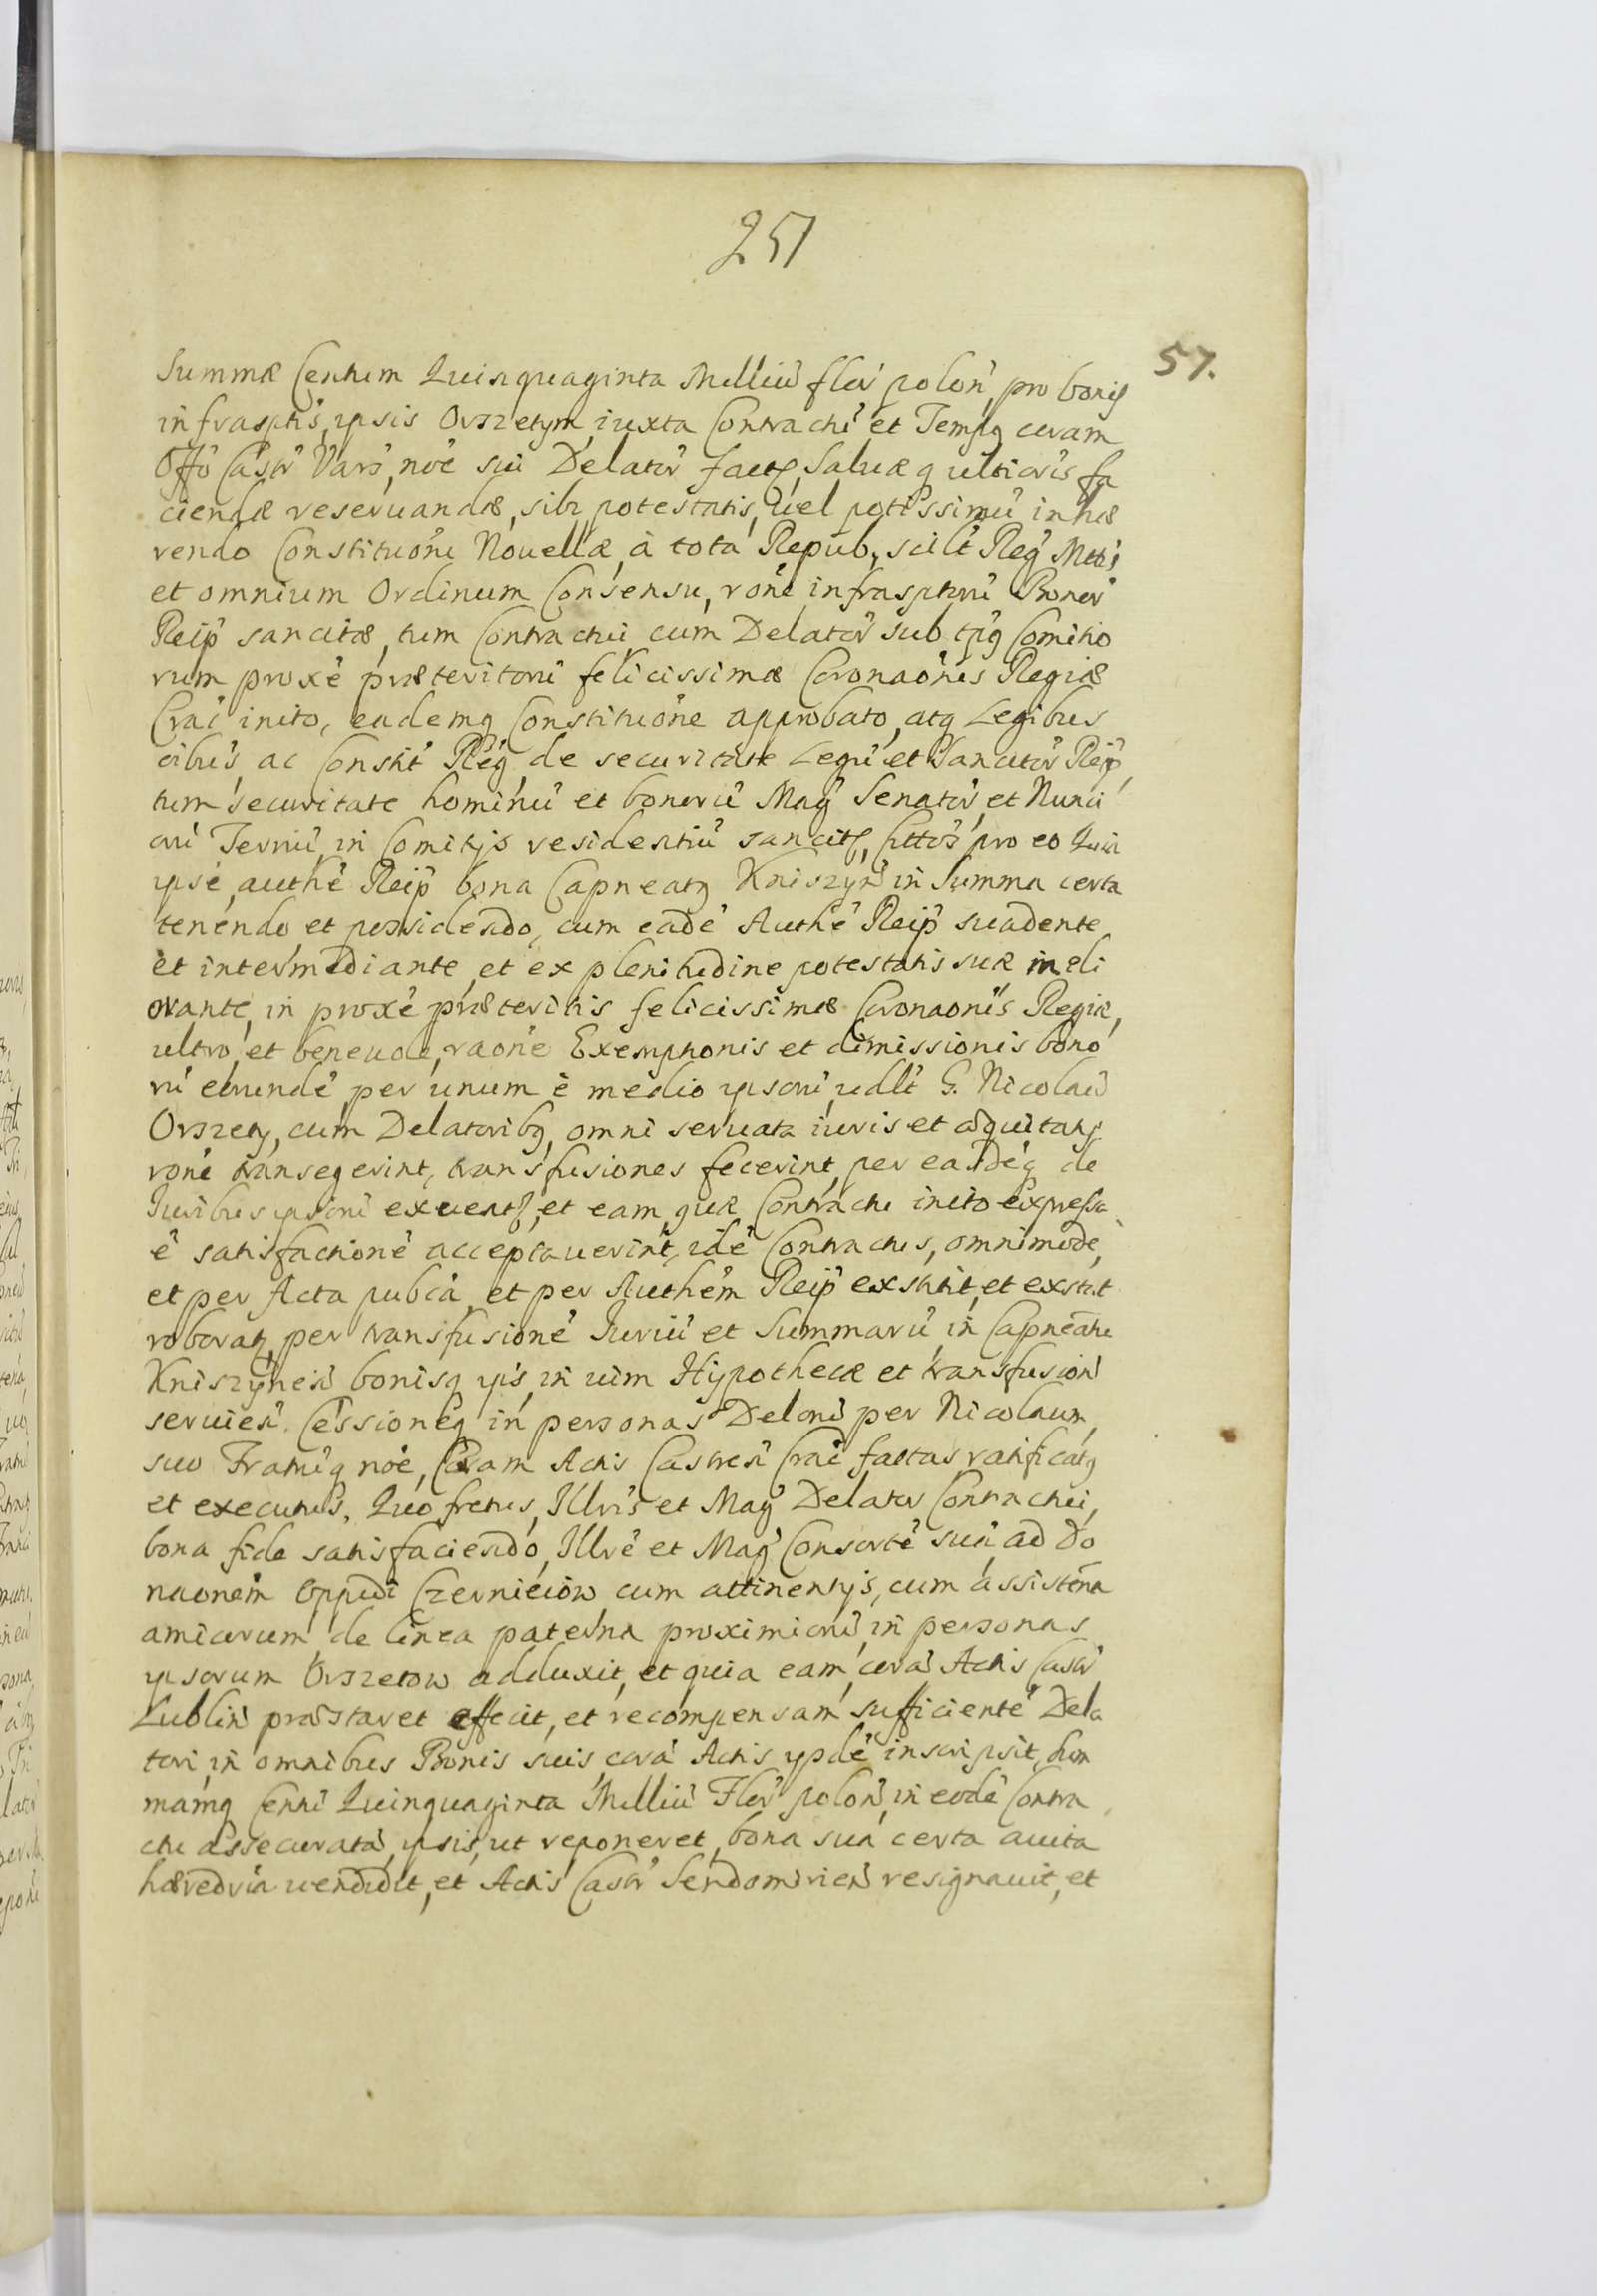 251
57.
Summæ Centum Quinquaginta Milliũ flor̃ polon̾, pro bonis
infrasptis, ipsis Orszetym, iuxta Contractũ et Tempq coram
Offo Castr̃ Vars̃, noẽ sui Delator̃ facts, Saluæq ulterioris fa
ciendæ reseruandæ, sibi potestatis, Vel potissimũ inhæ
rendo Constituõni Nouellæ, à tota Repub, scilt Reg̃ Mttis
et omnium Ordinum Consensu, rõne infrasptorũ Bonor̃
Reip̃ sancitæ, tum Contractui cum Delator̃ sub tpq Comitio
rum proxẽ præteritorũ felicissimæ Coronaõnis Regiæ
Craĩ inito, eademq Constituõne approbato, atq Legibus
oibus, ac Constit Reg̃ de securitate Legũ et Sancitor̃ Reip̃,
tum securitate hominũ et bonorũ Mag̃ Senator̃, et Nunci
orũ Terrũ, in Comitijs residentiũ sancits, Cittos̃ pro eo Quia
ipse, authẽ Reip̃ bona Capneatq Kniszyn̾ in Summa certa
tenendo et possidendo, cum eadẽ Authẽ Reip̃ suadente
et intermediante, et ex plenitudine potestatis suæ meli
orante, in proxẽ præteritis felicissimæ Coronaonis Regiæ,
ultro, et beneuole, raõne Exemptionis et dimissionis bono
rũ eorundẽ, per unum è medio ipsorũ, udlt G. Nicolaũ
Orszety, cum Delatoribq, omni seruata iuris et æquitatis
rõne transegerint, transfusiones fecerint, per easdẽq de
Juribus ipsorũ exuents, et eam, quæ Contractu inito expressa
ẽ satisfactionẽ acceptauerint, idẽ Contractus, omnimode,
et per Acta pubca, et per Authẽm Reip̃ exstitit, et exstat
roboratq, per transfusionẽ Juriũ et Summarũ, in Capneãtu
Kniszynen̾ bonisq ips̃, in uim Hypothecæ et transfusion̾
seruien̾. Cessionẽq in personas Delorũ per Nicolaum,
suo Fratrũq noẽ, Coram Actis Castren̾ Craĩ factas ratificatq
et executus. Quo fretus, Illris̃ et Mag̃ Delator Contractui,
bona fide satisfaciendo, Illrẽ et Mag̃ Consortẽ suã, ad Do
naonem Oppidi Czerniciow cum attinentijs, cum assistẽna
amicorum de linea paterna proximiorũ, in personas
ipsorum Orszetow adduxit, et quia eam, corã Actis Castr̃
Lublin̾ præstaret effecit, et recompensam sufficientẽ Dela
tori, in omnibus Bonis suis, corã Actis ypdẽ inscripsit, Sum
mamq Centũ Quinquaginta Milliũ Flor̃ polon̾, in eodẽ Contra
ctu assecuratã, ipsis, ut reponeret, bona sua certa auita
hæredria uendidit, et Actis Castr̃ Sendomirien̾ resignauit, et